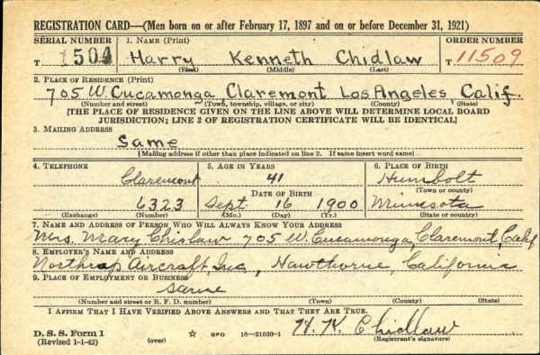 REGISTRATION CARD—(Men born on or after February 17, 1897 and on or before December 31, 1921)
SERIAL NUMBER 1. NAME (Print) ORDER NUMBER
T 1504 Harry Kenneth Chidlaw T 11509
(First) (Middle) (Last)
2. PLACE OF RESIDENCE (Print)
705 W. Cucamonga Claremont Los Angeles Calif.
(Number and street) (Town, township, village, or city) (County) (State)
[THE PLACE OF RESIDENCE GIVEN ON THE LINE ABOVE WILL DETERMINE LOCAL BOARD
JURISDICTION; LINE 2 OF REGISTRATION CERTIFICATE WILL BE IDENTICAL]
3. MAILING ADDRESS
Same
[Mailing address if other than place indicated on line 2. If same insert word same]
4. TELEPHONE 5. AGE IN YEARS 6. PLACE OF BIRTH
Claremont 41 Humbolt
DATE OF BIRTH (Town or county)
6323 Sept. 16 1900 Minnesota
(Exchange) (Number) (Mo.) (Day) (Yr.) (State or country)
7. NAME AND ADDRESS OF PERSON WHO WILL ALWAYS KNOW YOUR ADDRESS
Mrs. Mary Chislaw 705 W. Cucamonga, Claremont, Calif
8. EMPLOYER'S NAME AND ADDRESS
Northrop Aircraft Inc., Hawthorne, California
9. PLACE OF EMPLOYMENT OR BUSINESS
same
(Number and street or R. F. D. number) (Town) (County) (State)
I AFFIRM THAT I HAVE VERIFIED ABOVE ANSWERS AND THAT THEY ARE TRUE.
D. S. S. Form 1 H. K. Chidlaw
(Revised 1-1-42) (over) ☆ GPO 16—21630-1 (Registrant's signature)